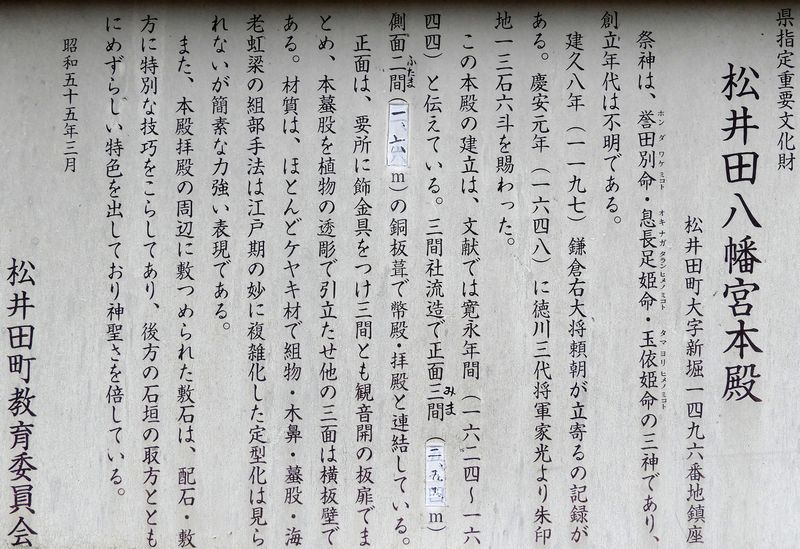 県指定重要文化財
松井田八幡宮本殿
松井田町大字新堀一四九六番地鎮座
祭神は、誉田別命・息長足姫命・玉依姫命の三神であり、
ホンダワケミコト オキナガタラシヒメノミコト タマヨリヒメノミコト
創立年代は不明である。
建久八年（一一九七）鎌倉右大将頼朝が立寄るの記録が
ある。慶安元年（一六四八）に徳川三代将軍家光より朱印
地一三石六斗を賜わった。
この本殿の建立は、文献では寛永年間（一六二四〜一六
四四）と伝えている。三間社流造で正面三間（三、五四m）
みま
側面二間（一、六八m）の銅板葺で幣殿・拝殿と連結している。
ふたま
正面は、要所に飾金具をつけ三間とも観音開の板扉でま
とめ、本蟇股を植物の透彫で引立たせ他の三面は横板壁で
ある。材質は、ほとんどケヤキ材で組物・木鼻・蟇股・海
老虹梁の組部手法は江戸期の妙に複雑化した定型化は見ら
れないが簡素な力強い表現である。
また、本殿拝殿の周辺に敷つめられた敷石は、配石・敷
方に特別な技巧をこらしてあり、後方の石垣の取方ととも
にめずらしい特色を出しており神聖さを倍している。
昭和五十五年三月
松井田町教育委員会